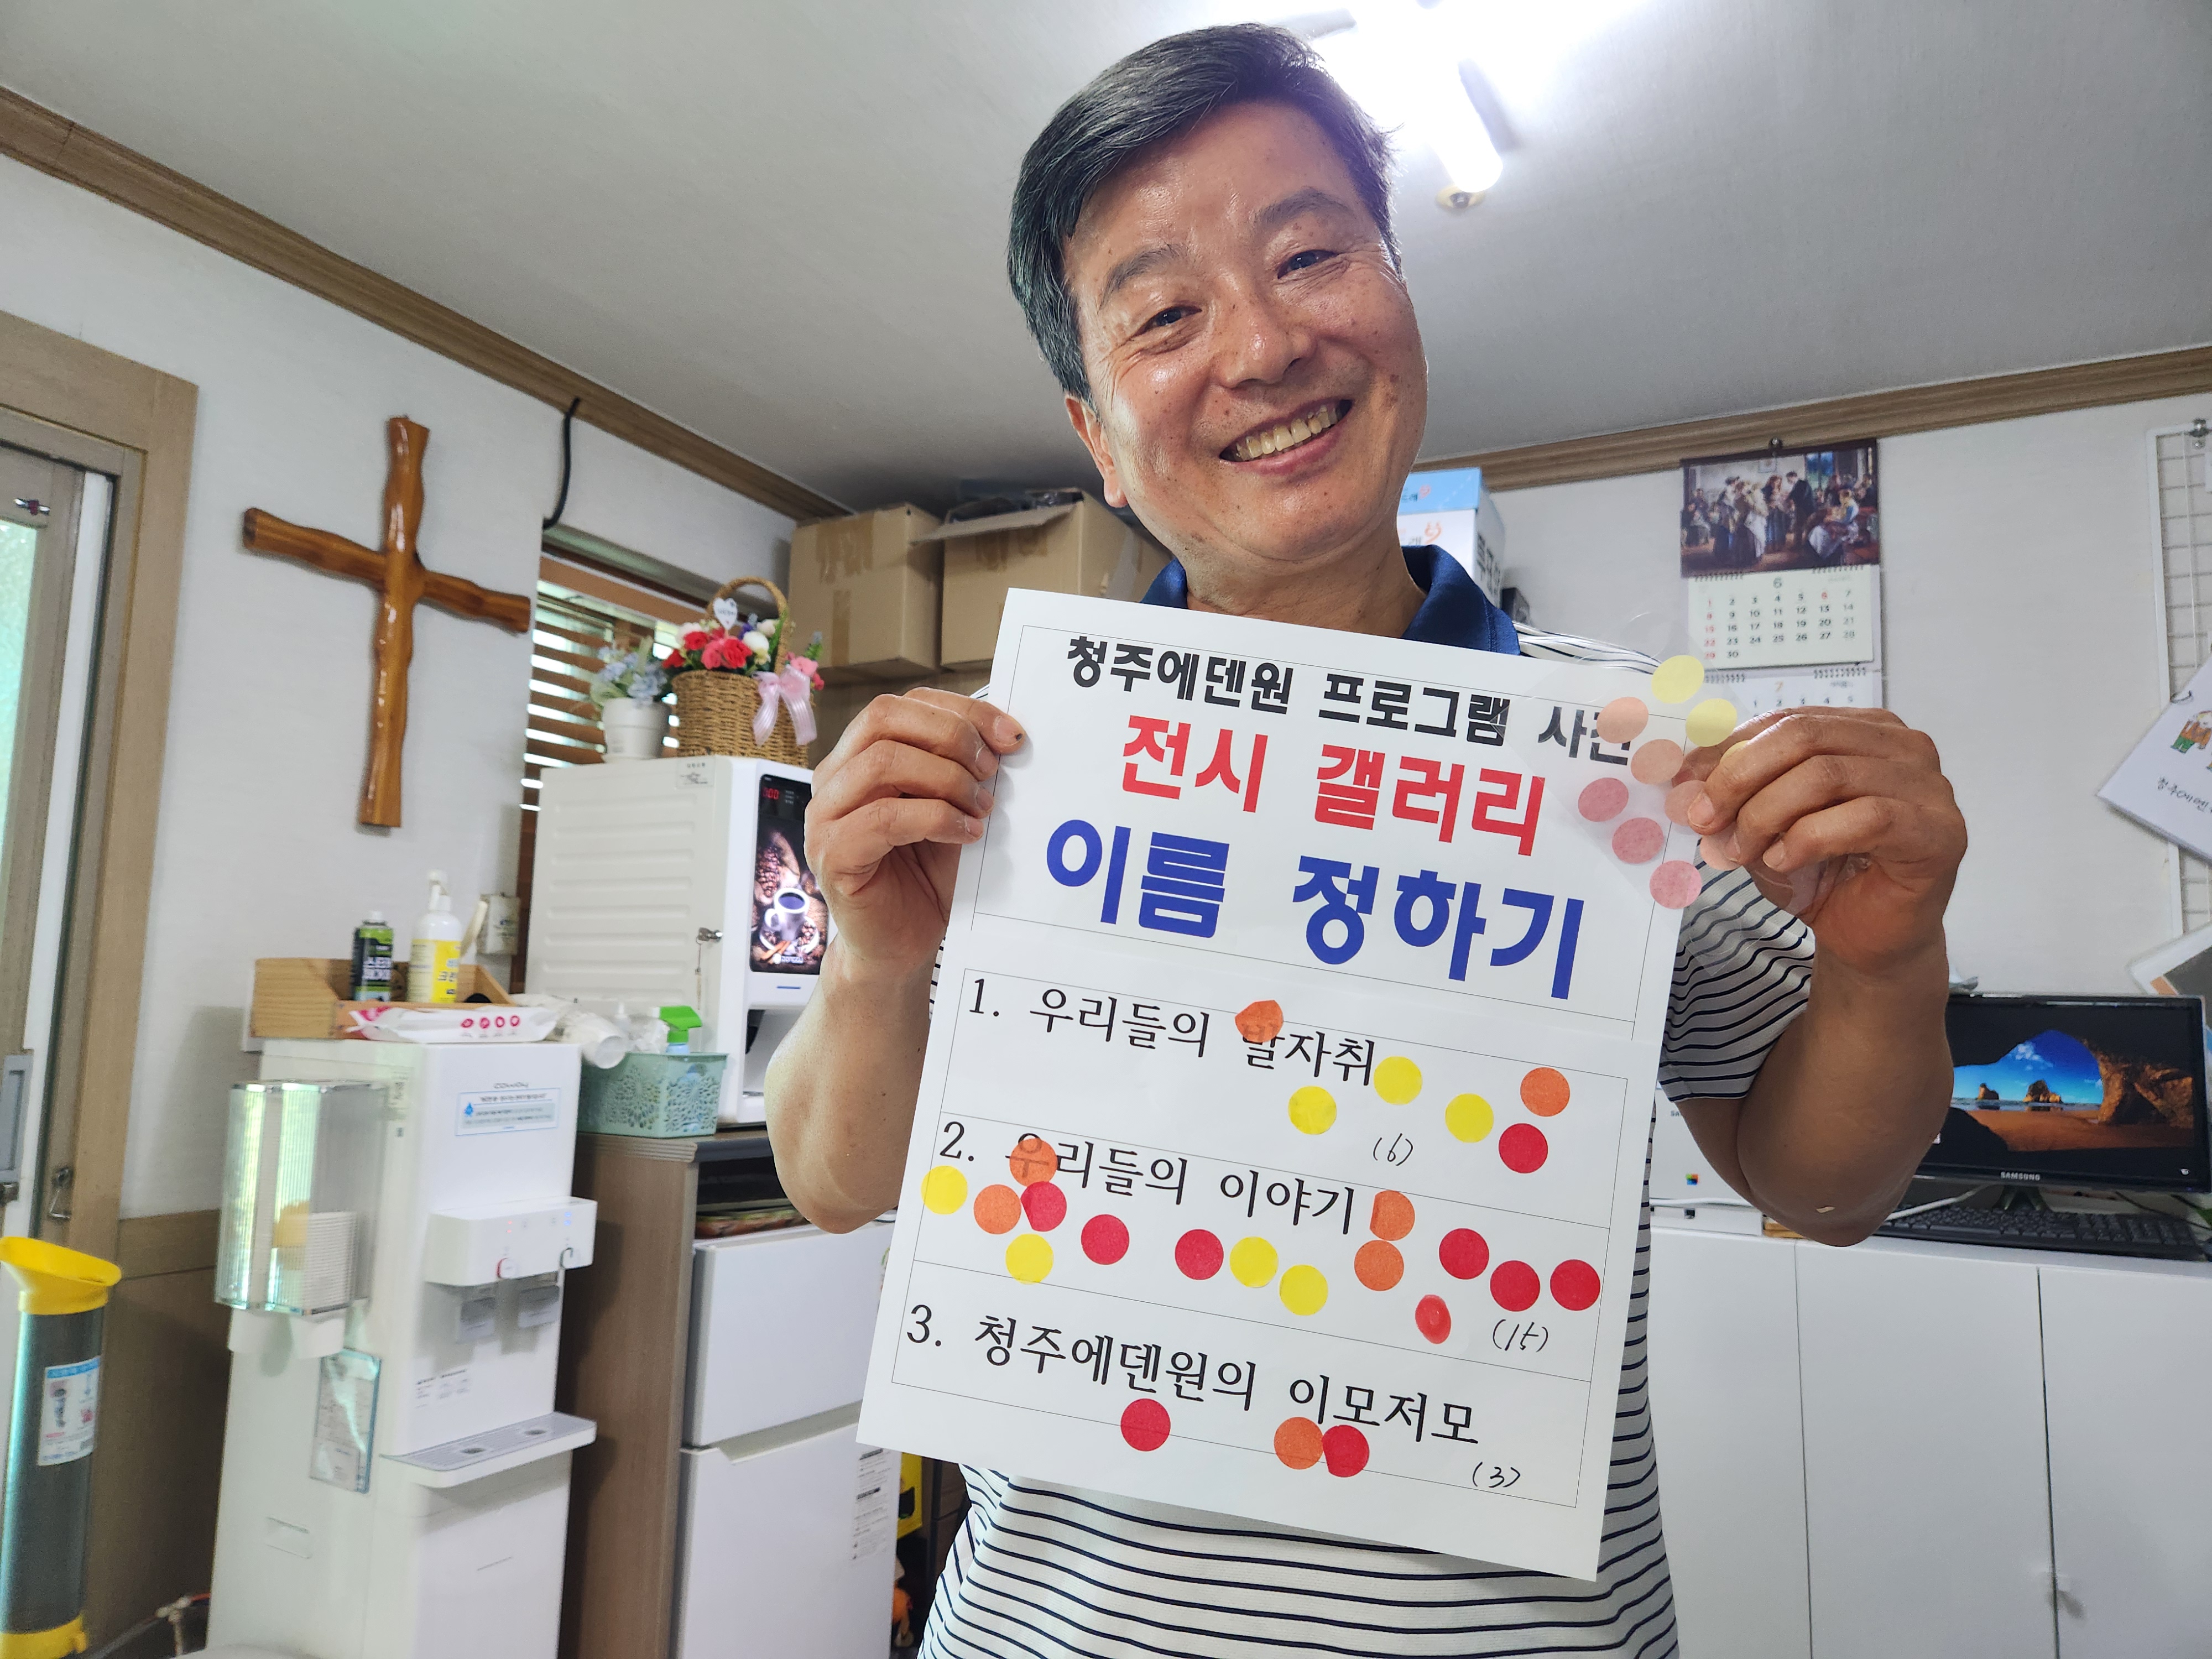 청주에덴원 프로그램 사진
전시 갤러리
이름 정하기
1. 우리들의 발자취
(6)
2. 우리들의 이야기
(15)
3. 청주에덴원의 이모저모
(3)
6
1 2 3 4 5 6 7
8 9 10 11 12 13 14
15 16 17 18 19 20 21
22 23 24 25 26 27 28
29 30
7
1 2 3 4 5
coway
SAMSUNG